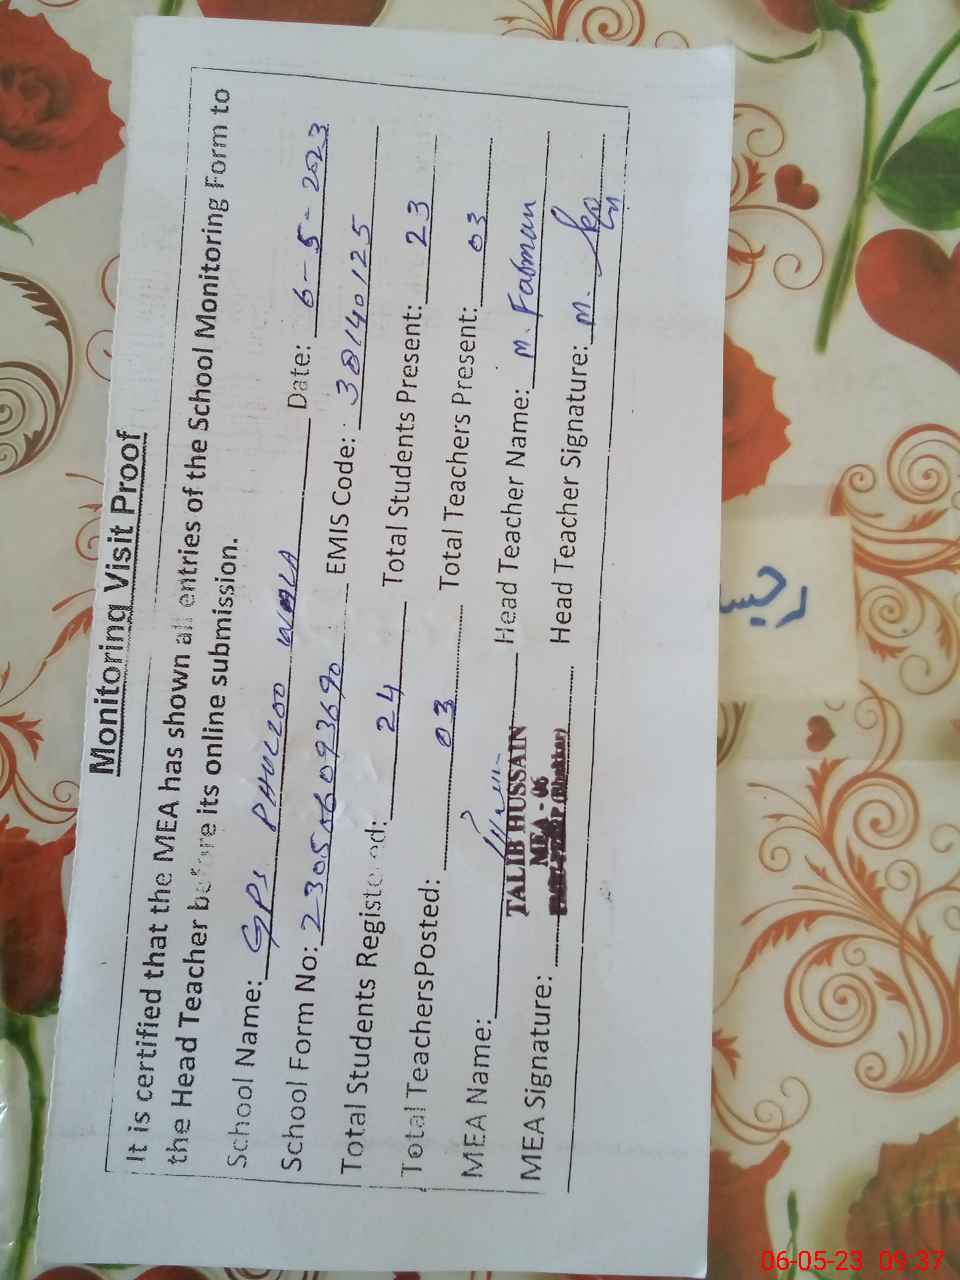 Monitoring Visit Proof
It is certified that the MEA has shown all entries of the School Monitoring Form to
the Head Teacher before its online submission.
School Name: GPS PHULZOO WALA Date: 6-5-2023
School Form No: EMIS Code: 38140125
Total Students Registered: 24 Total Students Present: 23
Total TeachersPosted: 03 Total Teachers Present: 03
MEA Name: Head Teacher Name: M.
TALIB HUSSAIN
MEA - 06
(Bhakkar)
MEA Signature: Head Teacher Signature: M.
رجسٹر
06-05-23 09:37